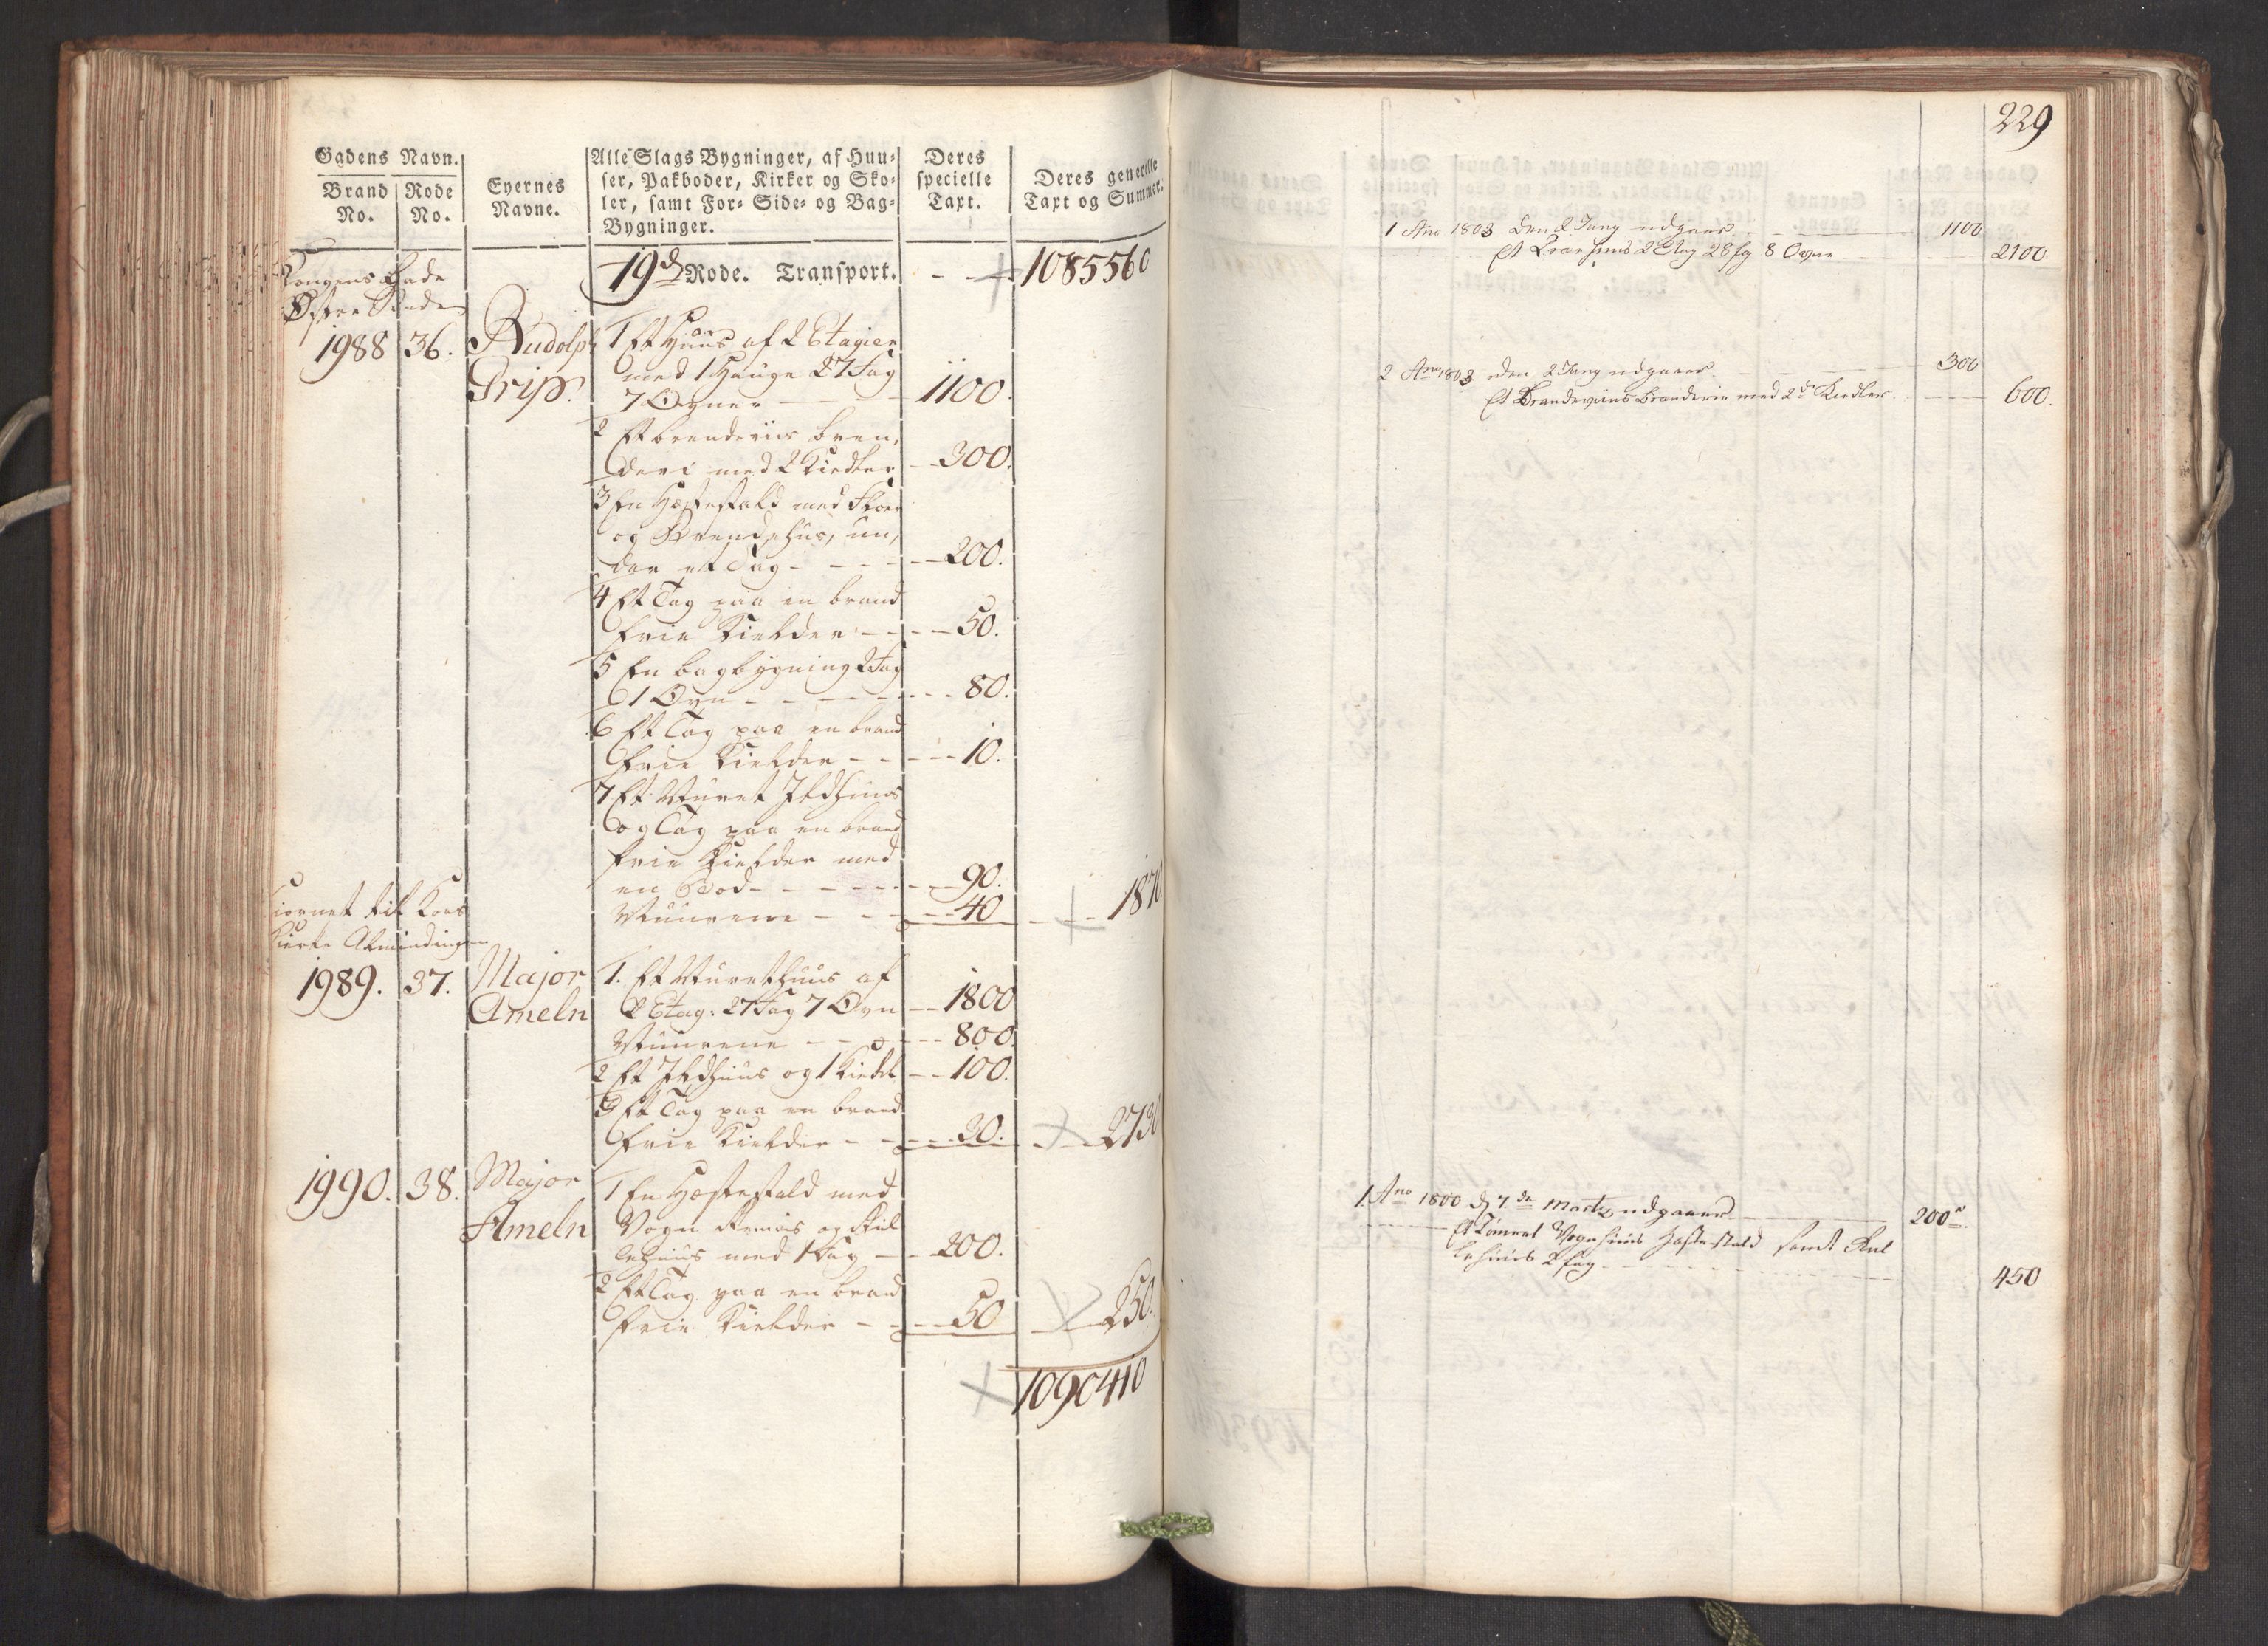 Gadens Navn.
Brand No.
Rode No.
Eyernes Navne.
Alle Slags Bygninger, af Huu-
ser, Pakboder, Kirker og Sko-
ler, samt For- Side- og Bag-
Bygninger.
Deres
specielle
Taxt.
Deres generille
Taxt og Summer.
Kongens Gade
Østre Side
19de Rode. Transport. 1085560
1988 36. Rudolph
Grip.
1 Et Huus af 2 Etagier
med 1 Hauge 27 Fag
7 Ovner 1100.
2 Et brendeviis bren,
deri med 2 Kiedler 300.
3 En Hestestald med Floer
og Brendehus, un,
der et Tag 200.
4 Et Tag paa en brand
frie Kielder 50.
5 En bagbygning 2 Fag
1 Ovn 80.
6 Et Tag paa en brand
frie Kielder 10.
7 Et Muret Ildhuus
og Tag paa en brand
frie Kielder med
en Bod 90.
Muurene 40 1870
Hiørnet til Kors
Kirke Almindingen
1989. 37. Major
Ameln
1. Et Muret Huus af
2 Etag: 27 Fag 7 Ovn 1800
Muurene 800.
2 Et Ildhuus og 1 Kiedel 100.
3 Et Tag paa en brand
frie Kielder 30. 2730
1990. 38. Major
Ameln
1 En Hestestald med
Vogn Remiis og Kul
lehuus med 1 Fag 200.
2 Et Tag paa en brand
frie Kielder 50 250.
1090410
229
1 Ano 1803 den 2 Juny udgaaer 1100
Et Vaaehuus 2 Etag 28 fag 8 Ovne 2100
2 Ano 1803 den 2 Juny udgaaer 300
Et Brandeviins Brænderie med 2de Kiedler 600.
1 Ano 1800 d 7de Marti udgaaer 200
Et Tømret Vognhuus Hestestald samt Kul
lehuus 2 fag 450